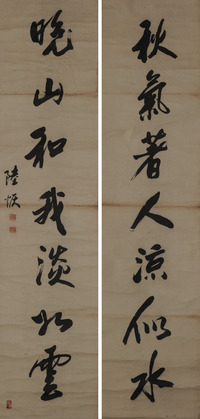 秋氣著人涼似水
晚山和我淡如雲
陸恢